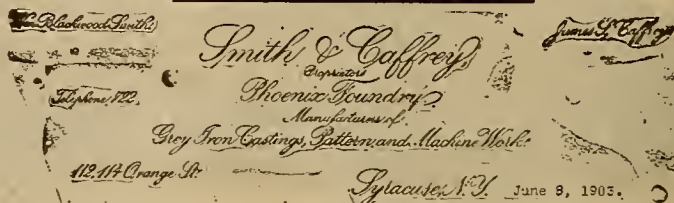 Wm. Blackwood Smith
James G. Caffrey
Smith & Caffrey,
Proprietors
Telephone, 722.
Phoenix Foundry.
Manufacturers of
Grey Iron Castings, Pattern, and Machine Work.
112, 114 Orange St.
Syracuse, N.Y. June 8, 1903.